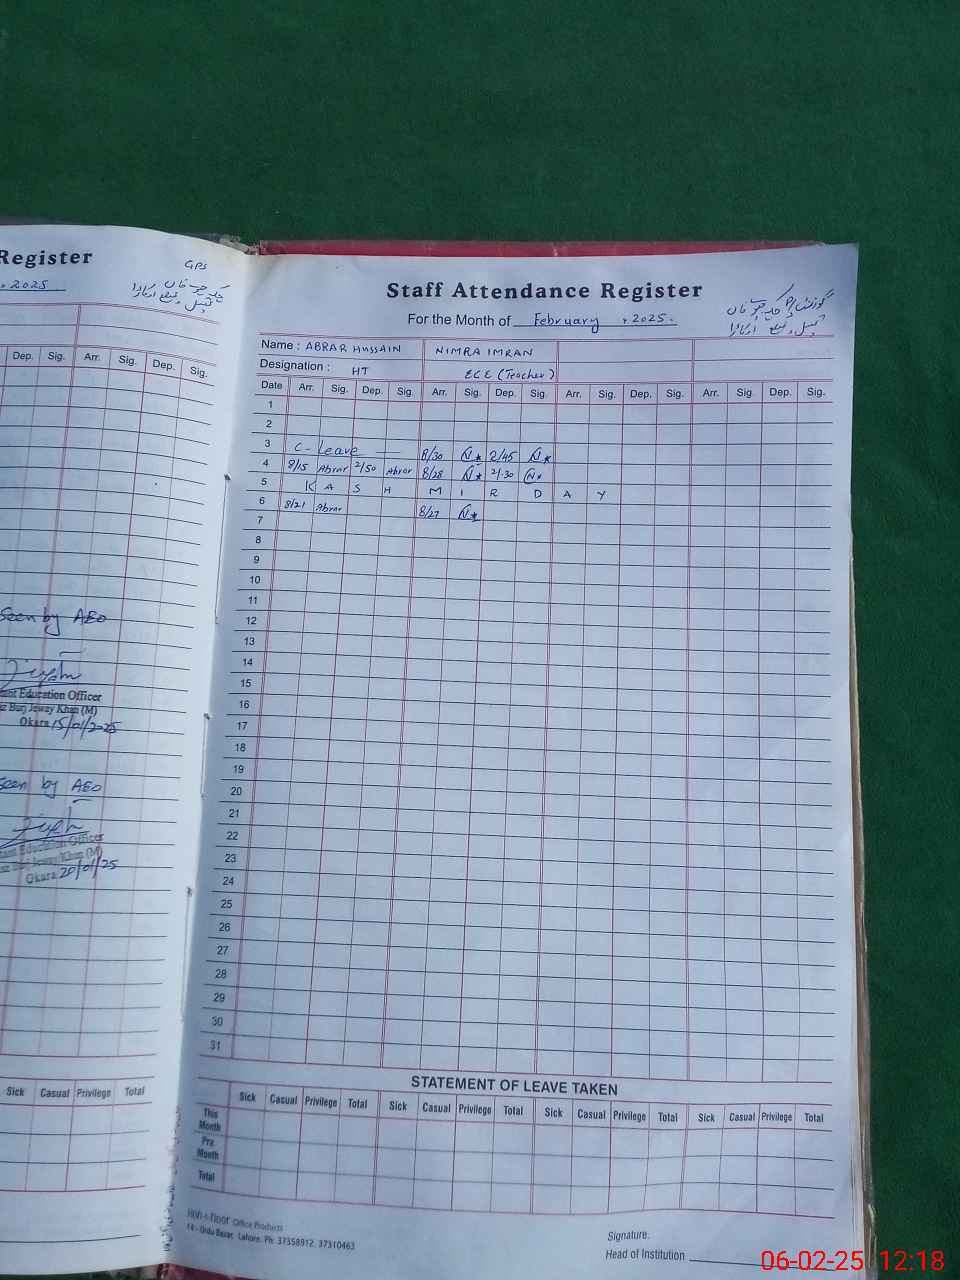 Register
GPS
, 2025
Dep. Sig. Arr. Sig. Dep. Sig.
Seen by AEO
Education Officer
Burj Jeway Khan (M)
Okara 15/01/2025
Seen by AEO
Education Officer
Burj Jeway Khan (M)
Okara 20/01/25
Sick Casual Privilege Total
Staff Attendance Register
For the Month of February , 2025.
Name : ABRAR HUSSAIN NIMRA IMRAN
Designation : HT ECE (Teacher)
Date Arr. Sig. Dep. Sig. Arr. Sig. Dep. Sig. Arr. Sig. Dep. Sig. Arr. Sig. Dep. Sig.
1
2
3 C- Leave 8/30 N 2/45 N
4 8/15 Abrar 2/50 Abrar 8/28 N 2/30 N
5 K A S H M I R D A Y
6 8/21 Abrar 8/27 N
7
8
9
10
11
12
13
14
15
16
17
18
19
20
21
22
23
24
25
26
27
28
29
30
31
STATEMENT OF LEAVE TAKEN
Sick Casual Privilege Total Sick Casual Privilege Total Sick Casual Privilege Total Sick Casual Privilege Total
This Month
Pre. Month
Total
Office Products
14 - Urdu Bazar, Lahore. Ph: 37358912, 37310463
Signature.
Head of Institution
06-02-25 12:18